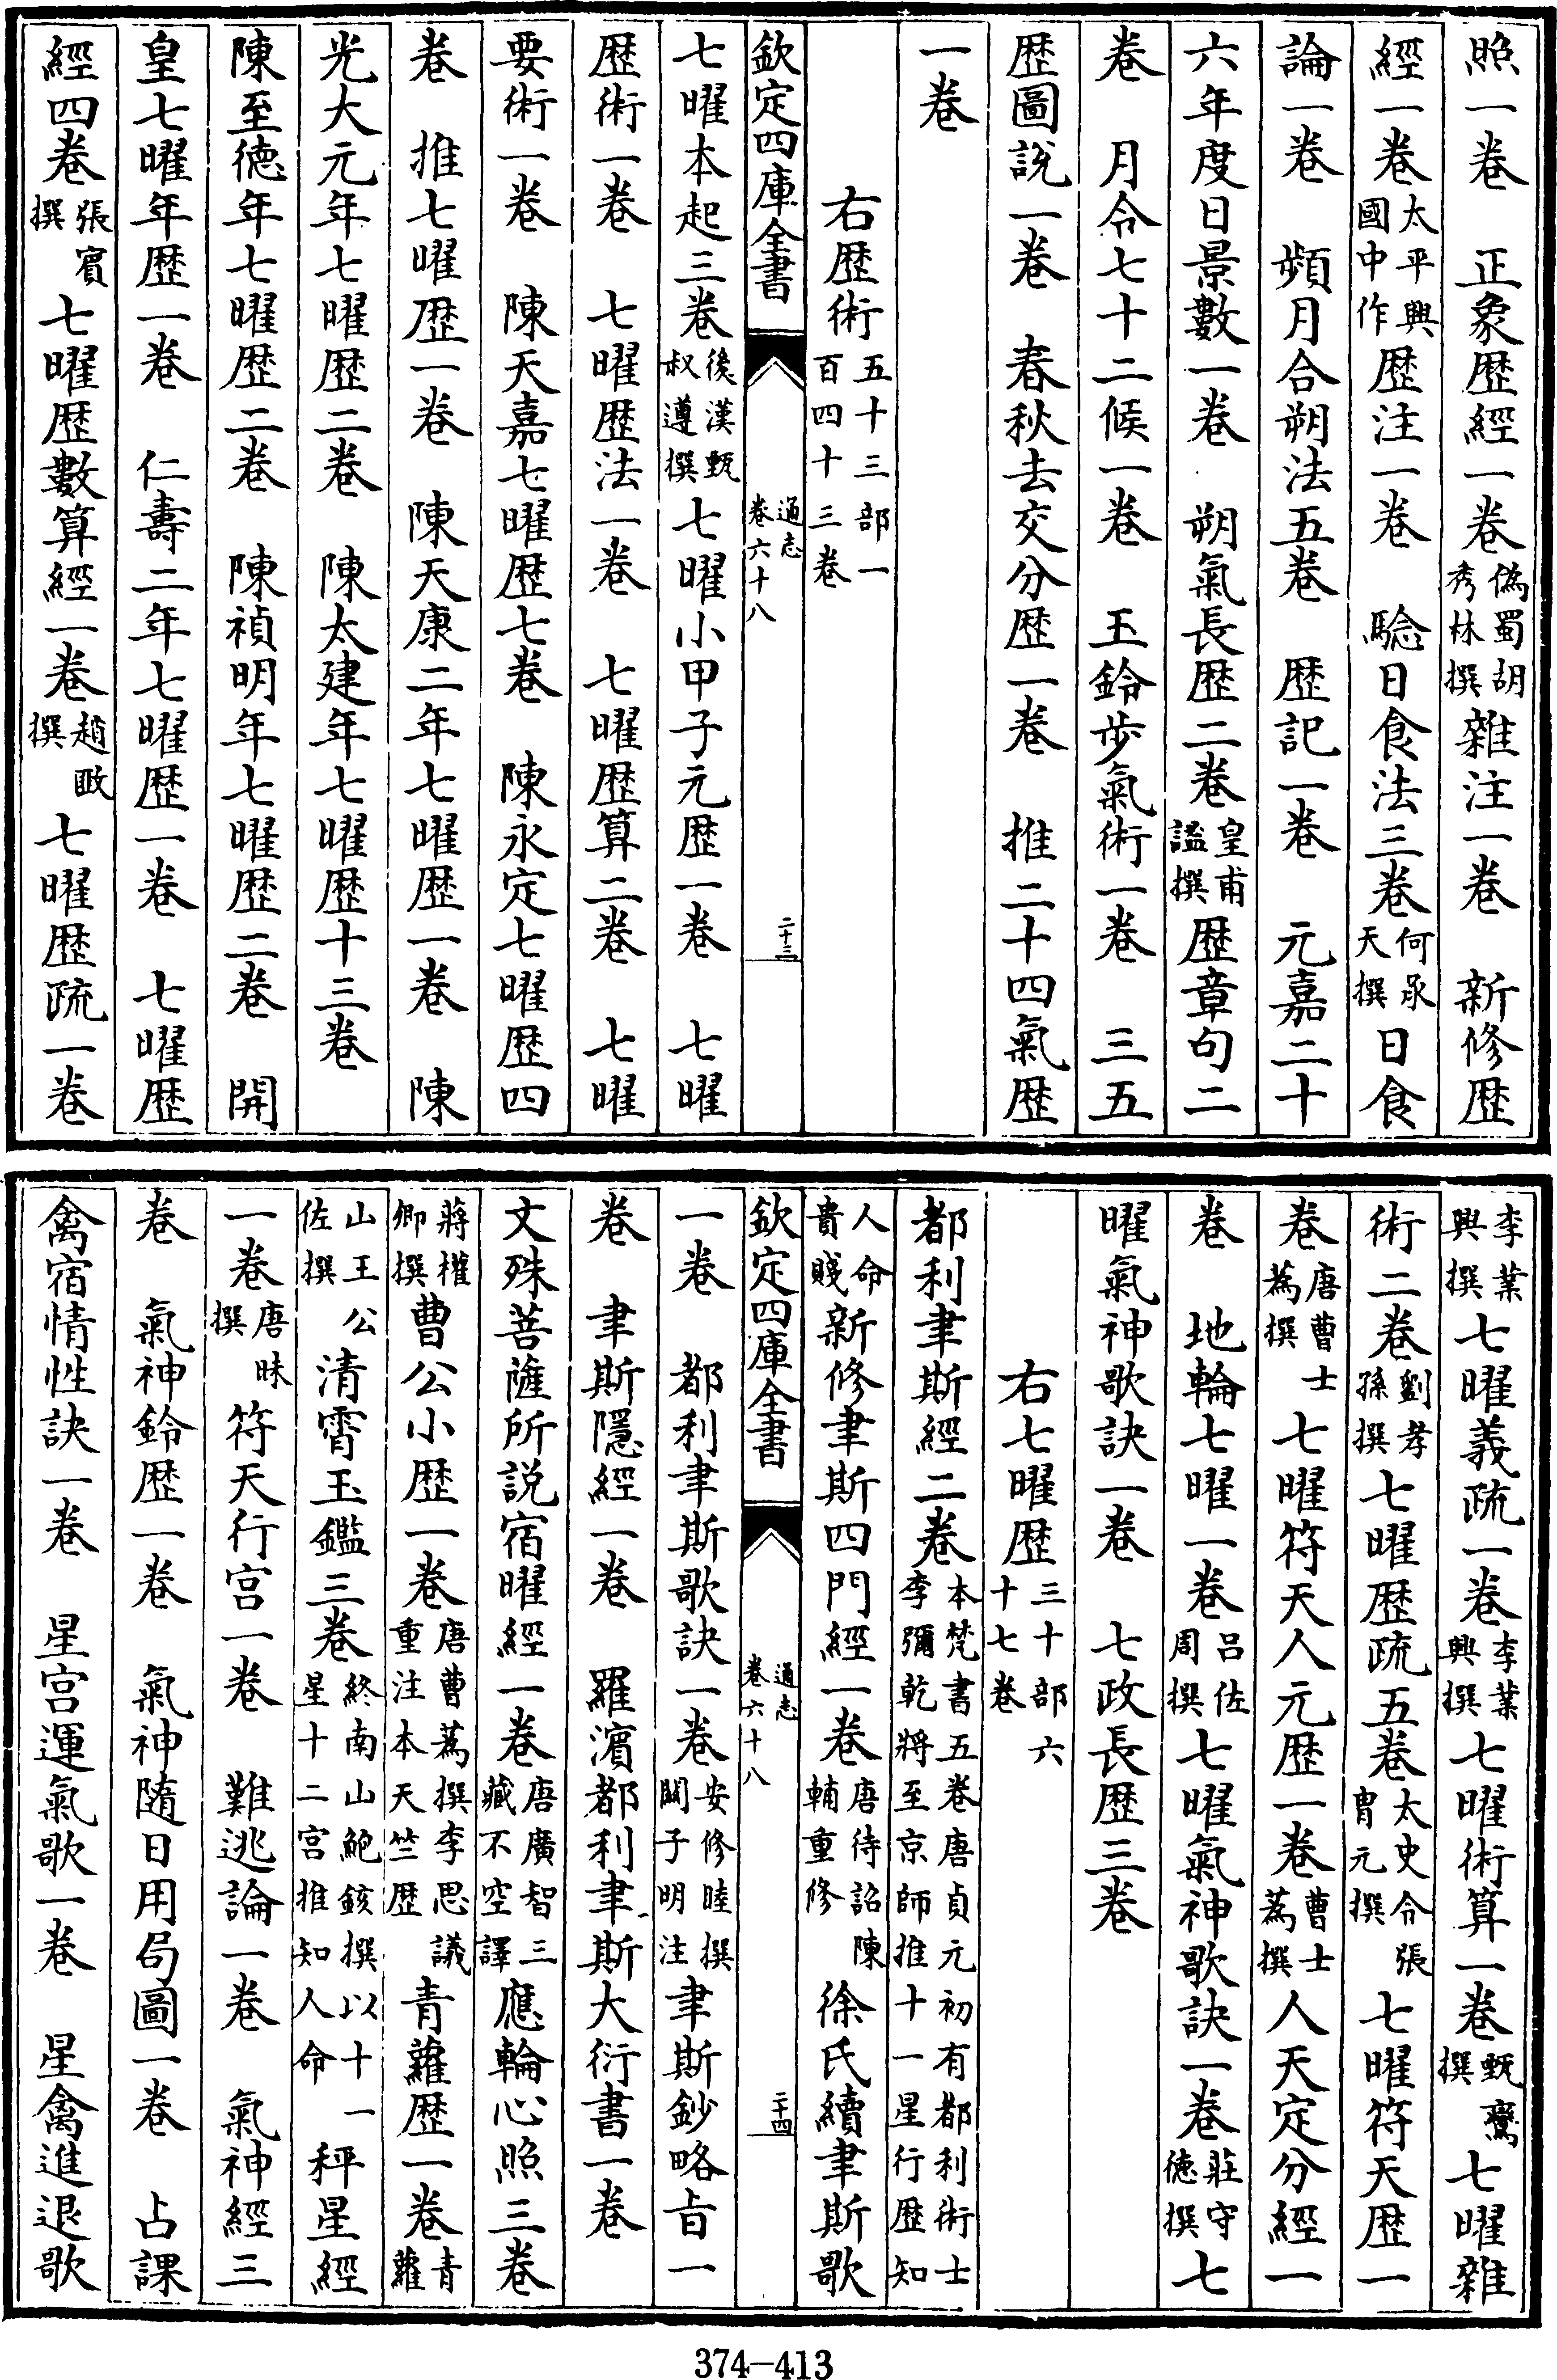 照一卷　正象歴經一卷偽蜀胡秀林撰雜注一卷　新修歴
經一卷太平興國中作歴注一卷　驗日食法三卷何承天撰日食
論一卷　頻月合朔法五卷　歴記一卷　元嘉二十
六年度日景數一卷　朔氣長歴二卷皇甫謐撰歴章句二
卷　月令七十二候一卷　玉鈐步氣術一卷　三五
歴圖説一卷　春秋去交分歴一卷　推二十四氣歴
一卷
右歴術五十三部一百四十三卷
欽定四庫全書　通志卷六十八　二十三
七曜本起三卷後漢甄叔遵撰七曜小甲子元歴一卷　七曜
歴術一卷　七曜歴法一卷　七曜歴算二卷　七曜
要術一卷　陳天嘉七曜歴七卷　陳永定七曜歴四
卷　推七曜歴一卷　陳天康二年七曜歴一卷　陳
光大元年七曜歴二卷　陳太建年七曜歴十三卷
陳至德年七曜歴二卷　陳禎明年七曜歴二卷　開
皇七曜年歴一卷　仁壽二年七曜歴一卷　七曜歴
經四卷張賓撰七曜歴數算經一卷趙𢾺撰七曜歴疏一卷
李業興撰七曜義疏一卷李業興撰七曜術算一卷甄鸞撰七曜雜
術二卷劉孝孫撰七曜歴疏五卷太史令張胄元撰七曜符天歴一
卷唐曹士蒍撰七曜符天人元歴一卷曹士蒍撰人天定分經一
卷　地輪七曜一卷呂佐周撰七曜氣神歌訣一卷莊守德撰七
曜氣神歌訣一卷　七政長歴三卷
右七曜歴三十部六十七卷
都利聿斯經二卷本梵書五卷唐貞元初有都利術士李彌乾將至京師推十一星行歴知
人命貴賤新修聿斯四門經一卷唐待詔陳輔重修徐氏續聿斯歌
欽定四庫全書　通志卷六十八　二十四
一卷　都利聿斯歌訣一卷安修睦撰關子明注聿斯鈔略旨一
卷　聿斯隱經一卷　羅濱都利聿斯大衍書一卷
文殊菩薩所説宿曜經一卷唐廣智三藏不空譯應輪心照三卷
蔣權卿撰曹公小歴一卷唐曹蒍撰李思議重注本天竺歴青蘿歴一卷青蘿
山王公佐撰清霄玉鑑三卷終南山鮑鋑撰以十一星十二宮推知人命秤星經
一卷唐昧撰符天行宮一卷　難逃論一卷　氣神經三
卷　氣神鈐歴一卷　氣神隨日用局圖一卷　占課
禽宿情性訣一卷　星宮運氣歌一卷　星禽進退歌
374-413